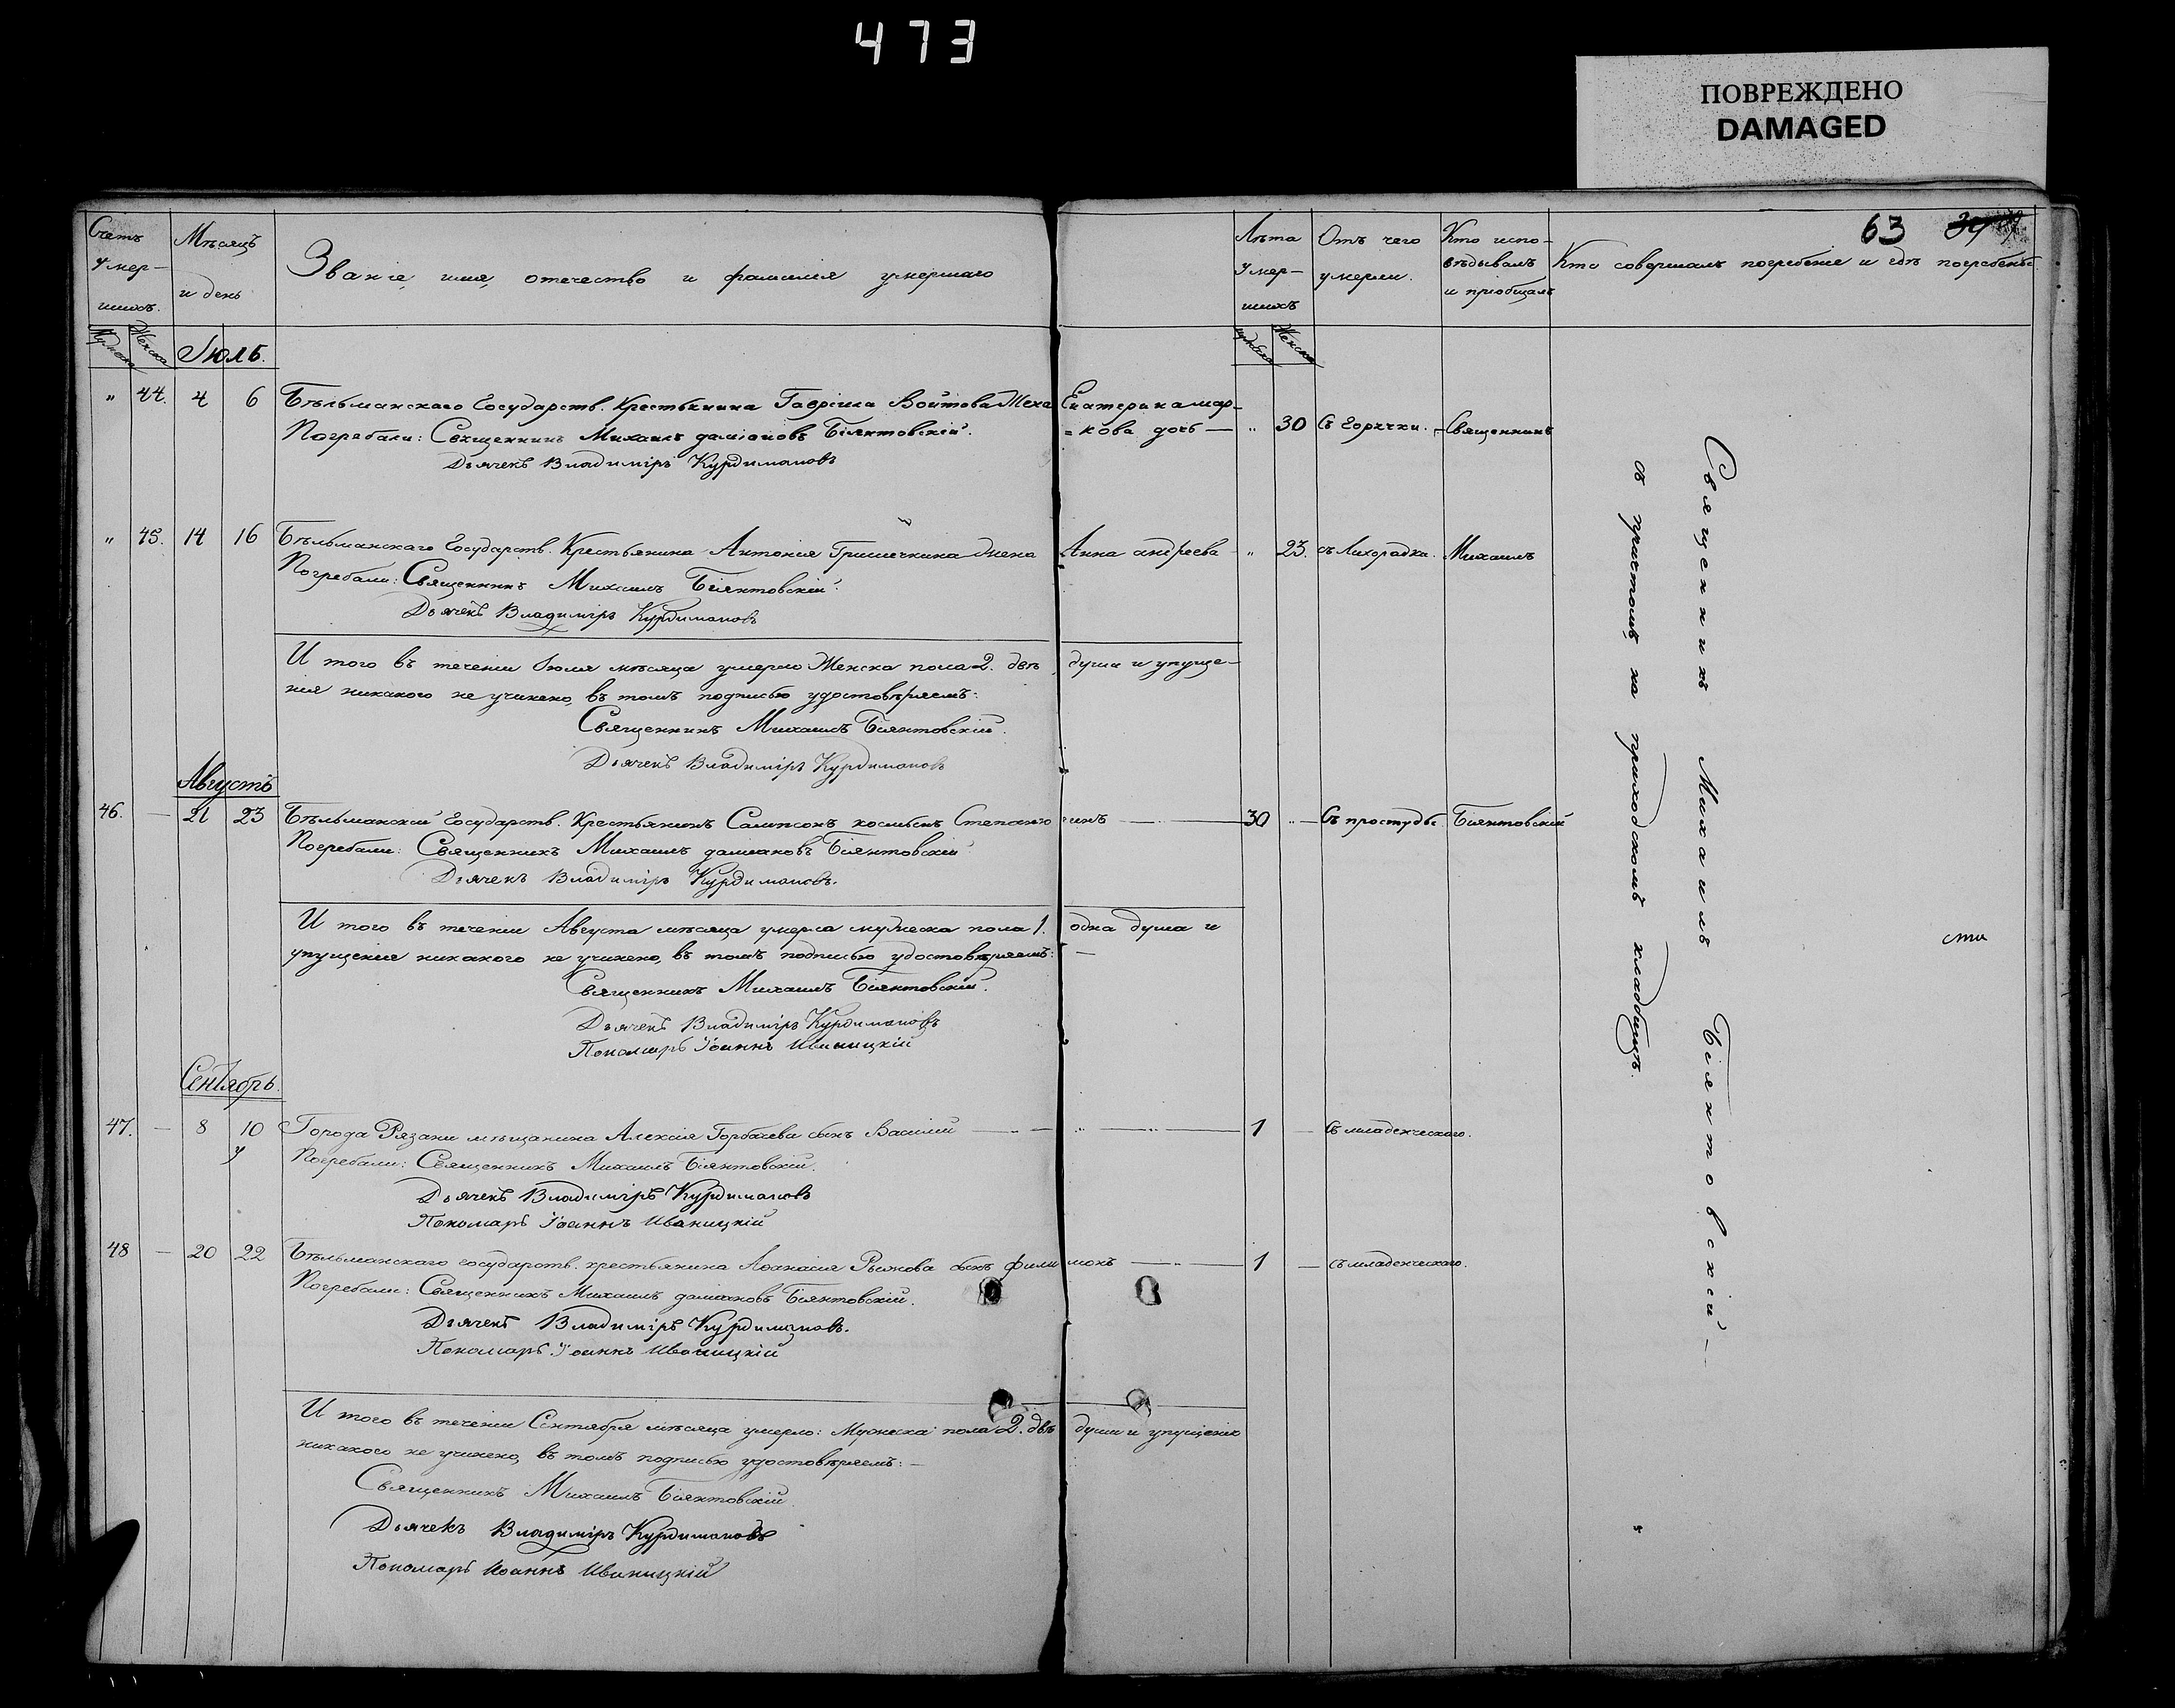 473
ПОВРЕЖДЕНО
DAMAGED
63
Счетъ умер-шихъ.
Мѣсяцъ и день
Званіе, имя, отечество и фамилія умершаго
Лѣта умер-шихъ
Отъ чего умерли.
Кто испо-вѣдывалъ и пріобщалъ
Кто совершалъ погребеніе и гдѣ погребенъ
Мужска Женска
Мужска Женска
Іюль.
" 44. 4 6 Бѣльманскаго Государств. Крестьянина Гавріила Войтова Жена Екатерина мар-
=кова дочь — " 30 Съ Горячки. — Священникъ
Погребали: Священникъ Михаилъ даміановъ Біянтовскій.
Дьячекъ Владиміръ Курдимановъ
" 45. 14 16 Бѣльманскаго Государств. Крестьянина Антонія Гришечкина Жена Анна андреева " 23. съ Лихорадки. Михаилъ
Погребали: Священникъ Михаилъ Біянтовскій.
Дьячекъ Владиміръ Курдимановъ
И того въ теченіи Іюля мѣсяца умерло Женска пола 2. двѣ душа и упуще-
нія никакого не учинено, въ томъ подписью удостовѣряемъ:
Священникъ Михаилъ Біянтовскій.
Дьячекъ Владиміръ Курдимановъ
Августъ
46. — 21 23 Бѣльманскій Государств. Крестьянинъ Сампсонъ косьминъ Степаню 30 " — Съ простуды. Біянтовскій
Погребали: Священникъ Михаилъ даміановъ Біянтовскій
Дьячекъ Владиміръ Курдимановъ.
И того въ теченіи Августа мѣсяца умерла мужеска пола 1. одна душа и
упущенія никакого не учинено, въ томъ подписью удостовѣряемъ: —
Священникъ Михаилъ Біянтовскій.
Дьячекъ Владиміръ Курдимановъ
Пономарь Іоаннъ Иваницкій
Сентябрь.
47. — 8 10 Города Рязани мѣщанина Алексія Горбачева сынъ Василій 1 — Съ младенческаго.
Погребали: Священникъ Михаилъ Біянтовскій.
Дьячекъ Владиміръ Курдимановъ
Пономарь Іоаннъ Иваницкій
48 — 20 22 Бѣльманскаго государств. крестьянина Аѳанасія Рыжова сынъ филимонъ 1 — съ младенческаго.
Погребали: Священникъ Михаилъ даміановъ Біянтовскій.
Дьячекъ Владиміръ Курдимановъ.
Пономарь Іоаннъ Иваницкій
И того въ теченіи Сентября мѣсяца умерло: Мужеска пола 2. двѣ души и упущенія
никакого не учинено, въ томъ подписью удостовѣряемъ: —
Священникъ Михаилъ Біянтовскій
Дьячекъ Владиміръ Курдимановъ
Пономарь Иоаннъ Иваницкій
Священникъ Михаилъ Біянтовскій —
съ причтомъ, на приходскомъ кладбищѣ.